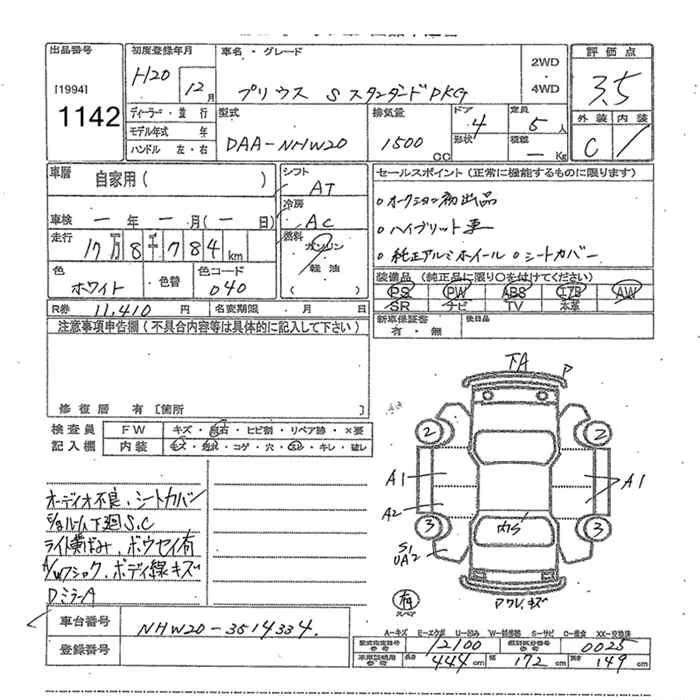 出品番号 初度登録年月 車名・グレード 2WD・4WD 評価点
[1994] 1142
H20 12月 プリウス Sスタンダード PKG 3.5
ディーラー・並行 型式 排気量 ドア 4 定員 5人 外装 内装
モデル年式 年 DAA-NHW20 1500cc 形状 積載 - Kg C
ハンドル 左・右
車歴 自家用( ) シフト AT セールスポイント(正常に機能するものに限ります)
車検 一年一月(一日) 冷房 AC
。オークション初出品
。ハイブリット車
。純正アルミホイール 。シートカバー
走行 17万8千784km 燃料 ガソリン 軽油
色 ホワイト 色替 色コード 040
装備品(純正品に限り○を付けてください)
PS PW ABS エアB AW
SR ナビ TV 本革
R券 11,410円 名変期限 月 日
新車保証書 有・無 後日品
注意事項申告欄(不具合内容等は具体的に記入して下さい)
修復歴 有[箇所 ]
検査員記入欄 FW キズ・飛石・ヒビ割・リペア跡・×要
内装 キズ・汚れ・コゲ・穴・キレ・破レ
オーディオ不良、シートカバー
下廻S.C
ライト黄ばみ、ボウセイ有
ボディ線キズ
DミラーA
下A P
2 2
A1 A1
A2
3 3
内S
S1
UA2
有
スペア
ワレ.キズ
車台番号 NHW20-3514334.
登録番号
A-キズ E-エクボ U-凹み W-補修跡 S-サビ C-腐食 XX-交換済
型式指定番号 参考 12100 類別区分番号 参考 0025
車庫証明用 参考 長さ 444cm 幅 172cm 高さ 149cm